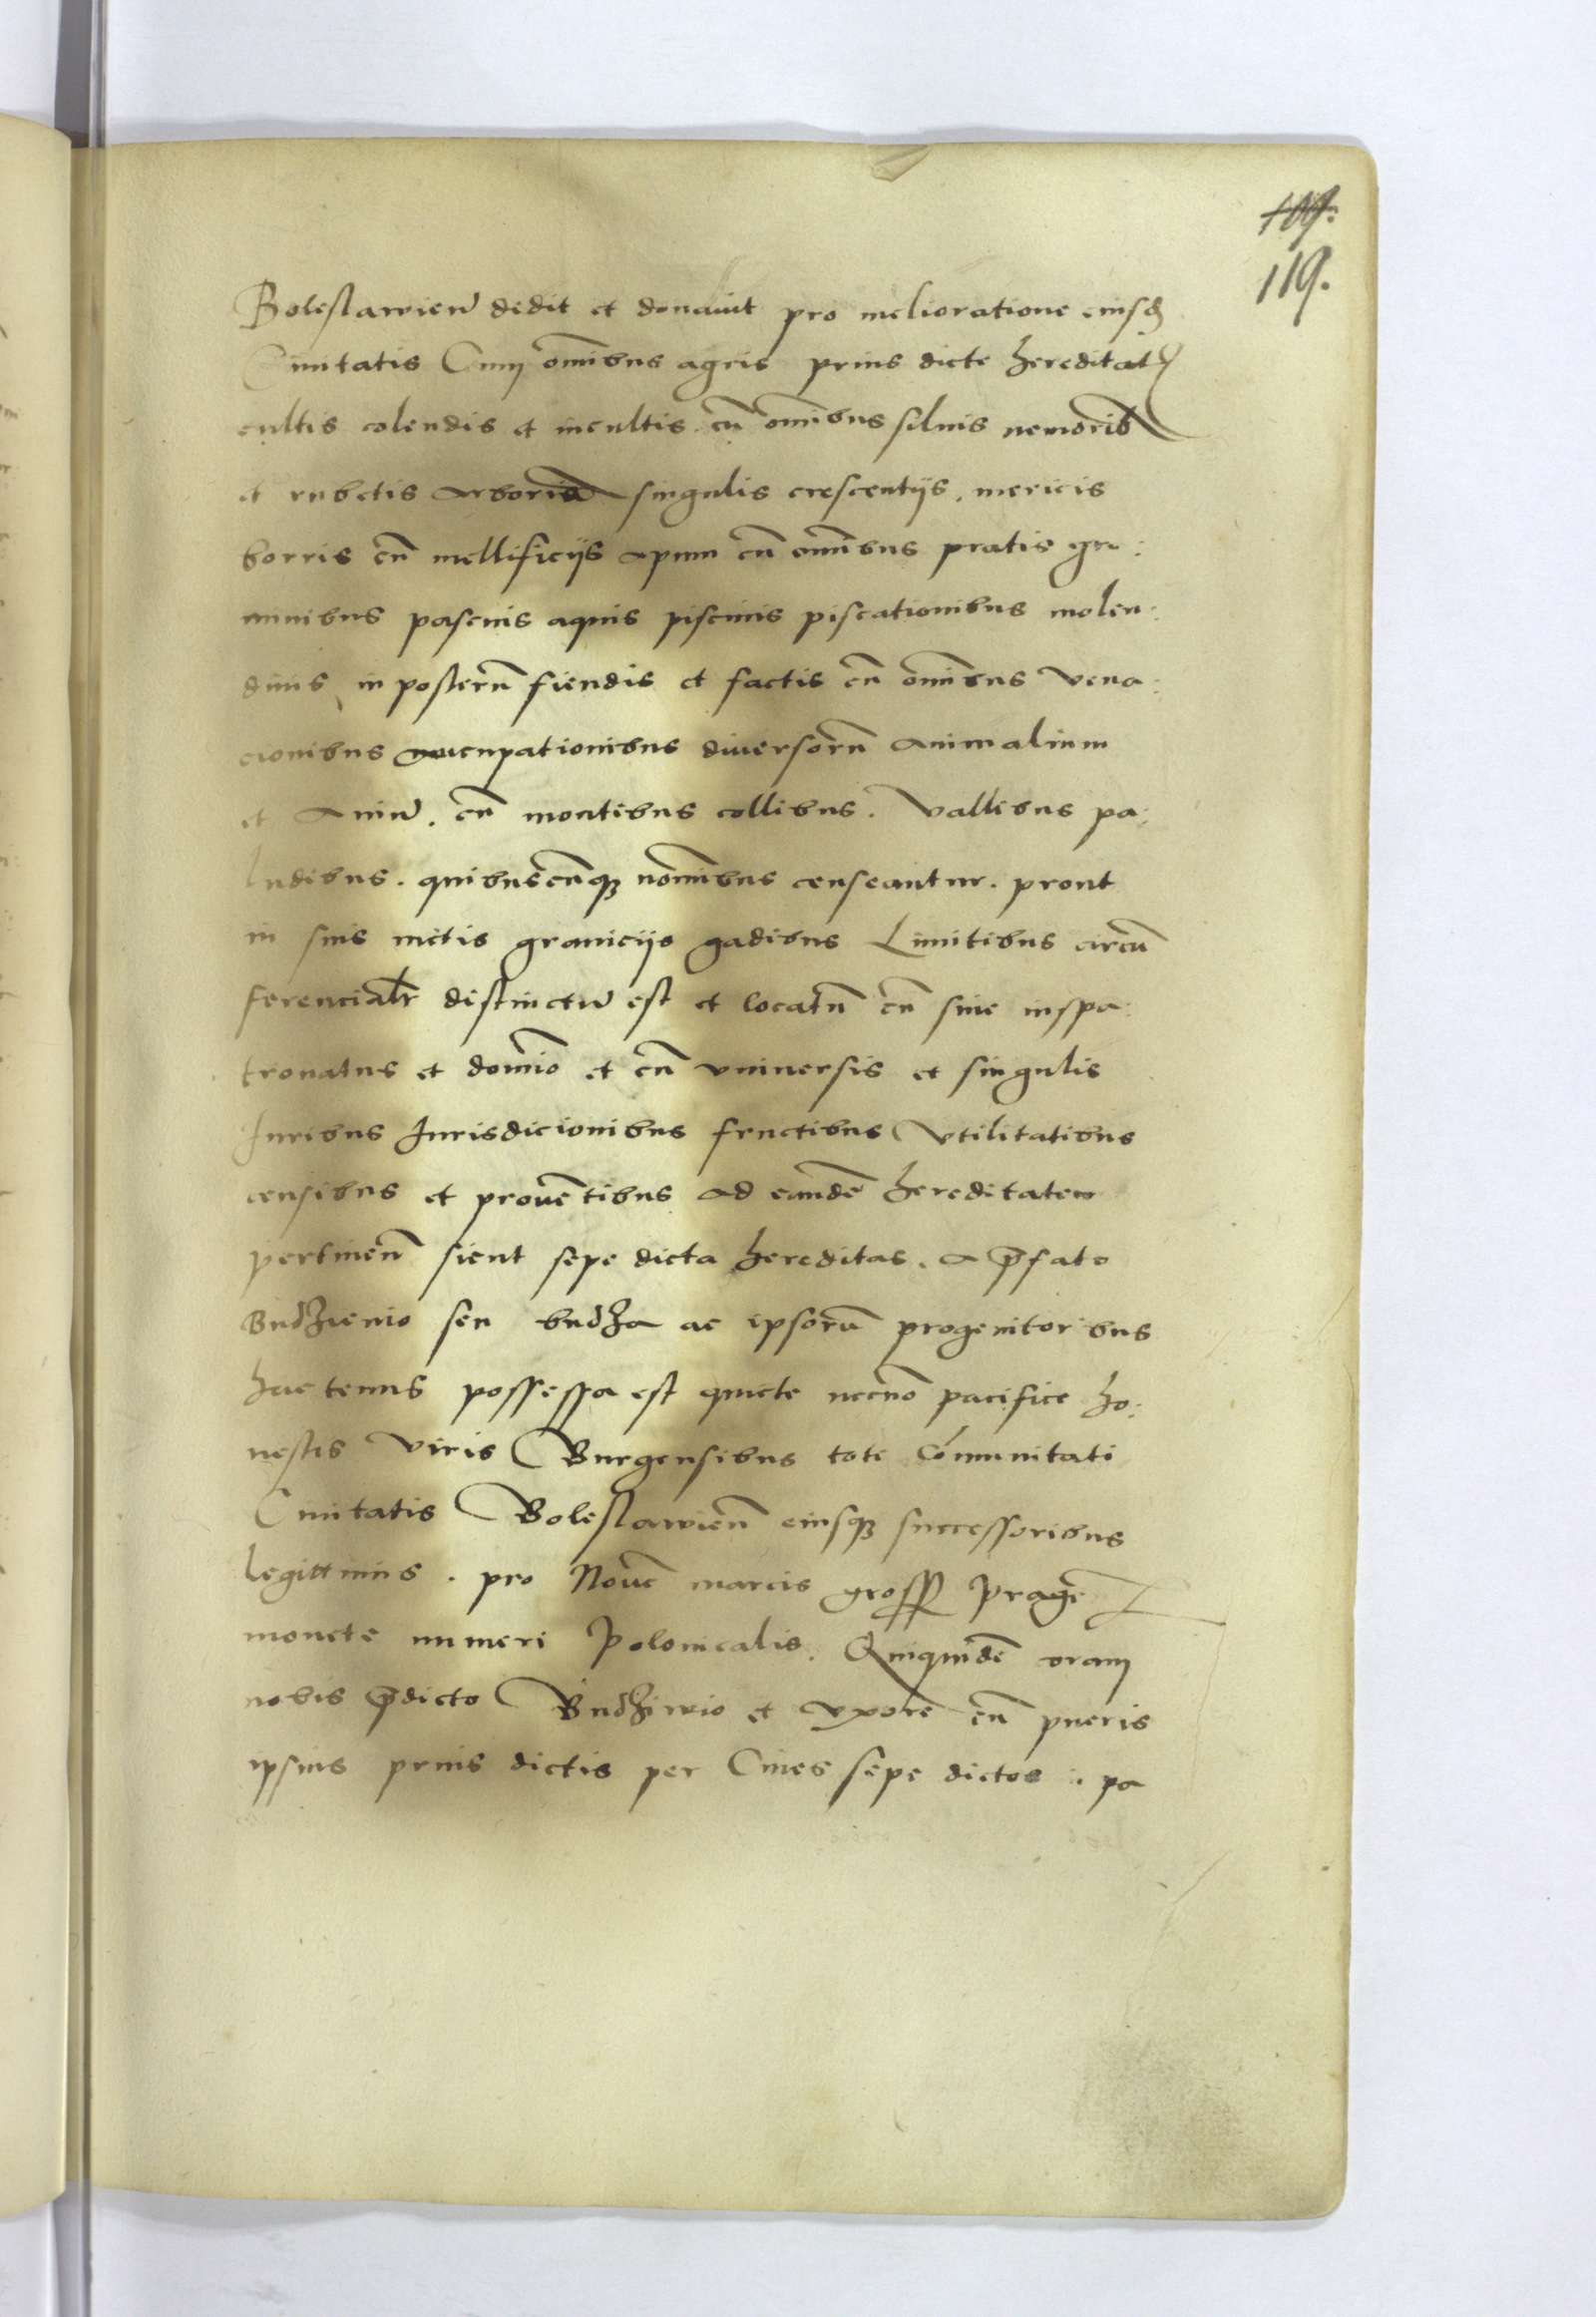 109.
119.
Boleslawien̄ dedit et donauit pro melioratione eiusd̄
Ciuitatis Cum om̄ibus agris prius dicte hereditat̄
cultis colendis et incultis cū om̄ibus siluis nemorib
et rubetis arborū singulis crescentijs. mericis
borris cū mellificijs apum cū om̄ibus pratis gra:
minibus pascuis aquis piscinis piscationibus molen:
dinis in posterū fiendis et factis cū om̄ibus vena:
cionibus aucupationibus diuersorū animalium
et Auiū. cū montibus collibus. Vallibus pa:
ludibus. quibuscūq; nom̄ibus censeantur. prout
in suis metis granicijs gadibus Limitibus circū
ferencialr̄ distinctū est et locatū cū siue iuspa:
tronatus et domīo et cū vniuersis et singulis
Juribus Jurisdicionibus fructibus Vtilitatibus
censibus et prouētibus ad eandē hereditatem
pertinen̄ sicut sepe dicta hereditas. a p̄fato
Budzienio seu budza ac ipsorū progenitoribus
hactenus possessa est quiete necnō pacifice ho:
nestis viris Burgensibus toti Cōmunitati
Ciuitatis Boleslawien̄ eiusq; successoribus
legittimis. pro Nouē marcis gross̄ Pragē
monete numeri Polonicalis. Quiquidē coram
nobis p̄dicto Budziwio et vxore cū pueris
ipsius prius dictis per Ciues sepe dictos. pa